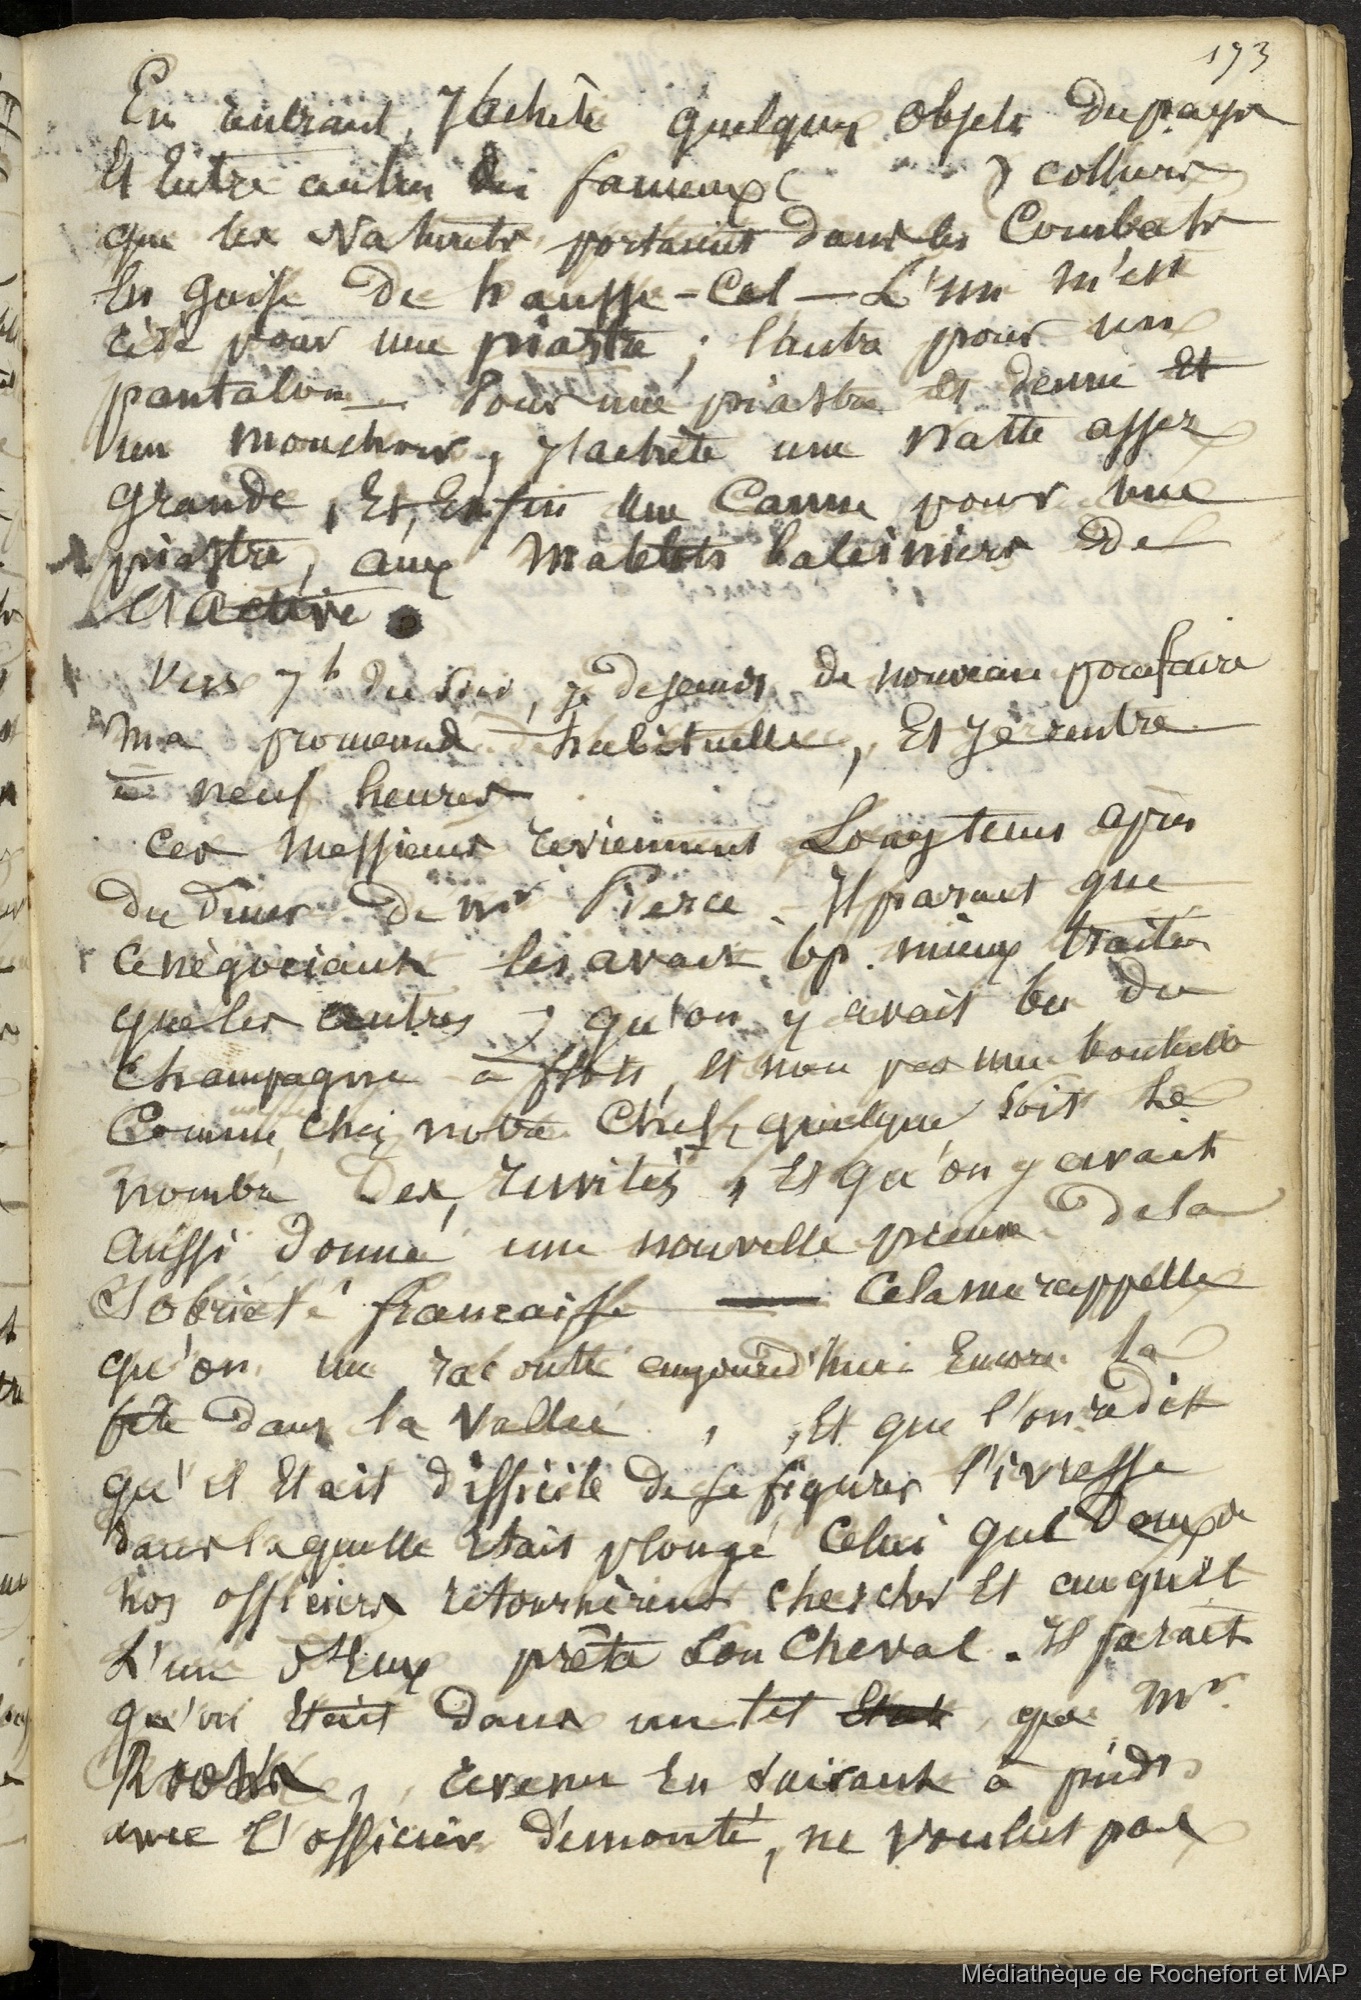 173
En rentrant, J'achète quelques objets du pays
Et Entre autres des fameux ( ) colliers
que les Naturels portaient dans les Combats
En guise de hausse-Col — L'un m'est
cédé pour une piastre ; l'autre pour un
pantalon — Pour une piastre et demie Et
un mouchoir, J'achète une natte assez
grande, Et, Enfin une Canne pour une
piastre, aux Matelots baleiniers de
l'Active.
Vers 7h du soir, je descends de nouveau pour faire
ma promenade habituelle, Et je rentre
à neuf heures
Ces Messieurs reviennent Longtems après
du diner de Mr Pierce. Il parait que
ce négociant les avait bp. mieux traités
que les autres ; qu'on y avait bu du
Champagne à flots, et non pas une bouteille
Comme chez notre Chef, quelque soit le
nombre des invités, Et qu'on y avait
aussi donné une nouvelle preuve de la
Sobriété française — Cela me rappelle
qu'on me raconte aujourd'hui Encore la
fête dans la Vallée , , Et que l'on a dit
qu'il Etait difficile de se figurer l'ivresse
dans laquelle était plongé Celui que Deux de
nos officiers retournèrent chercher Et auquel
L'un d'Eux prêta son Cheval. Il parait
qu'on Etait dans un tel Etat que Mr.
, revenu En suivant à pieds
avec l'officier démonté, ne voulut pas
Médiathèque de Rochefort et MAP